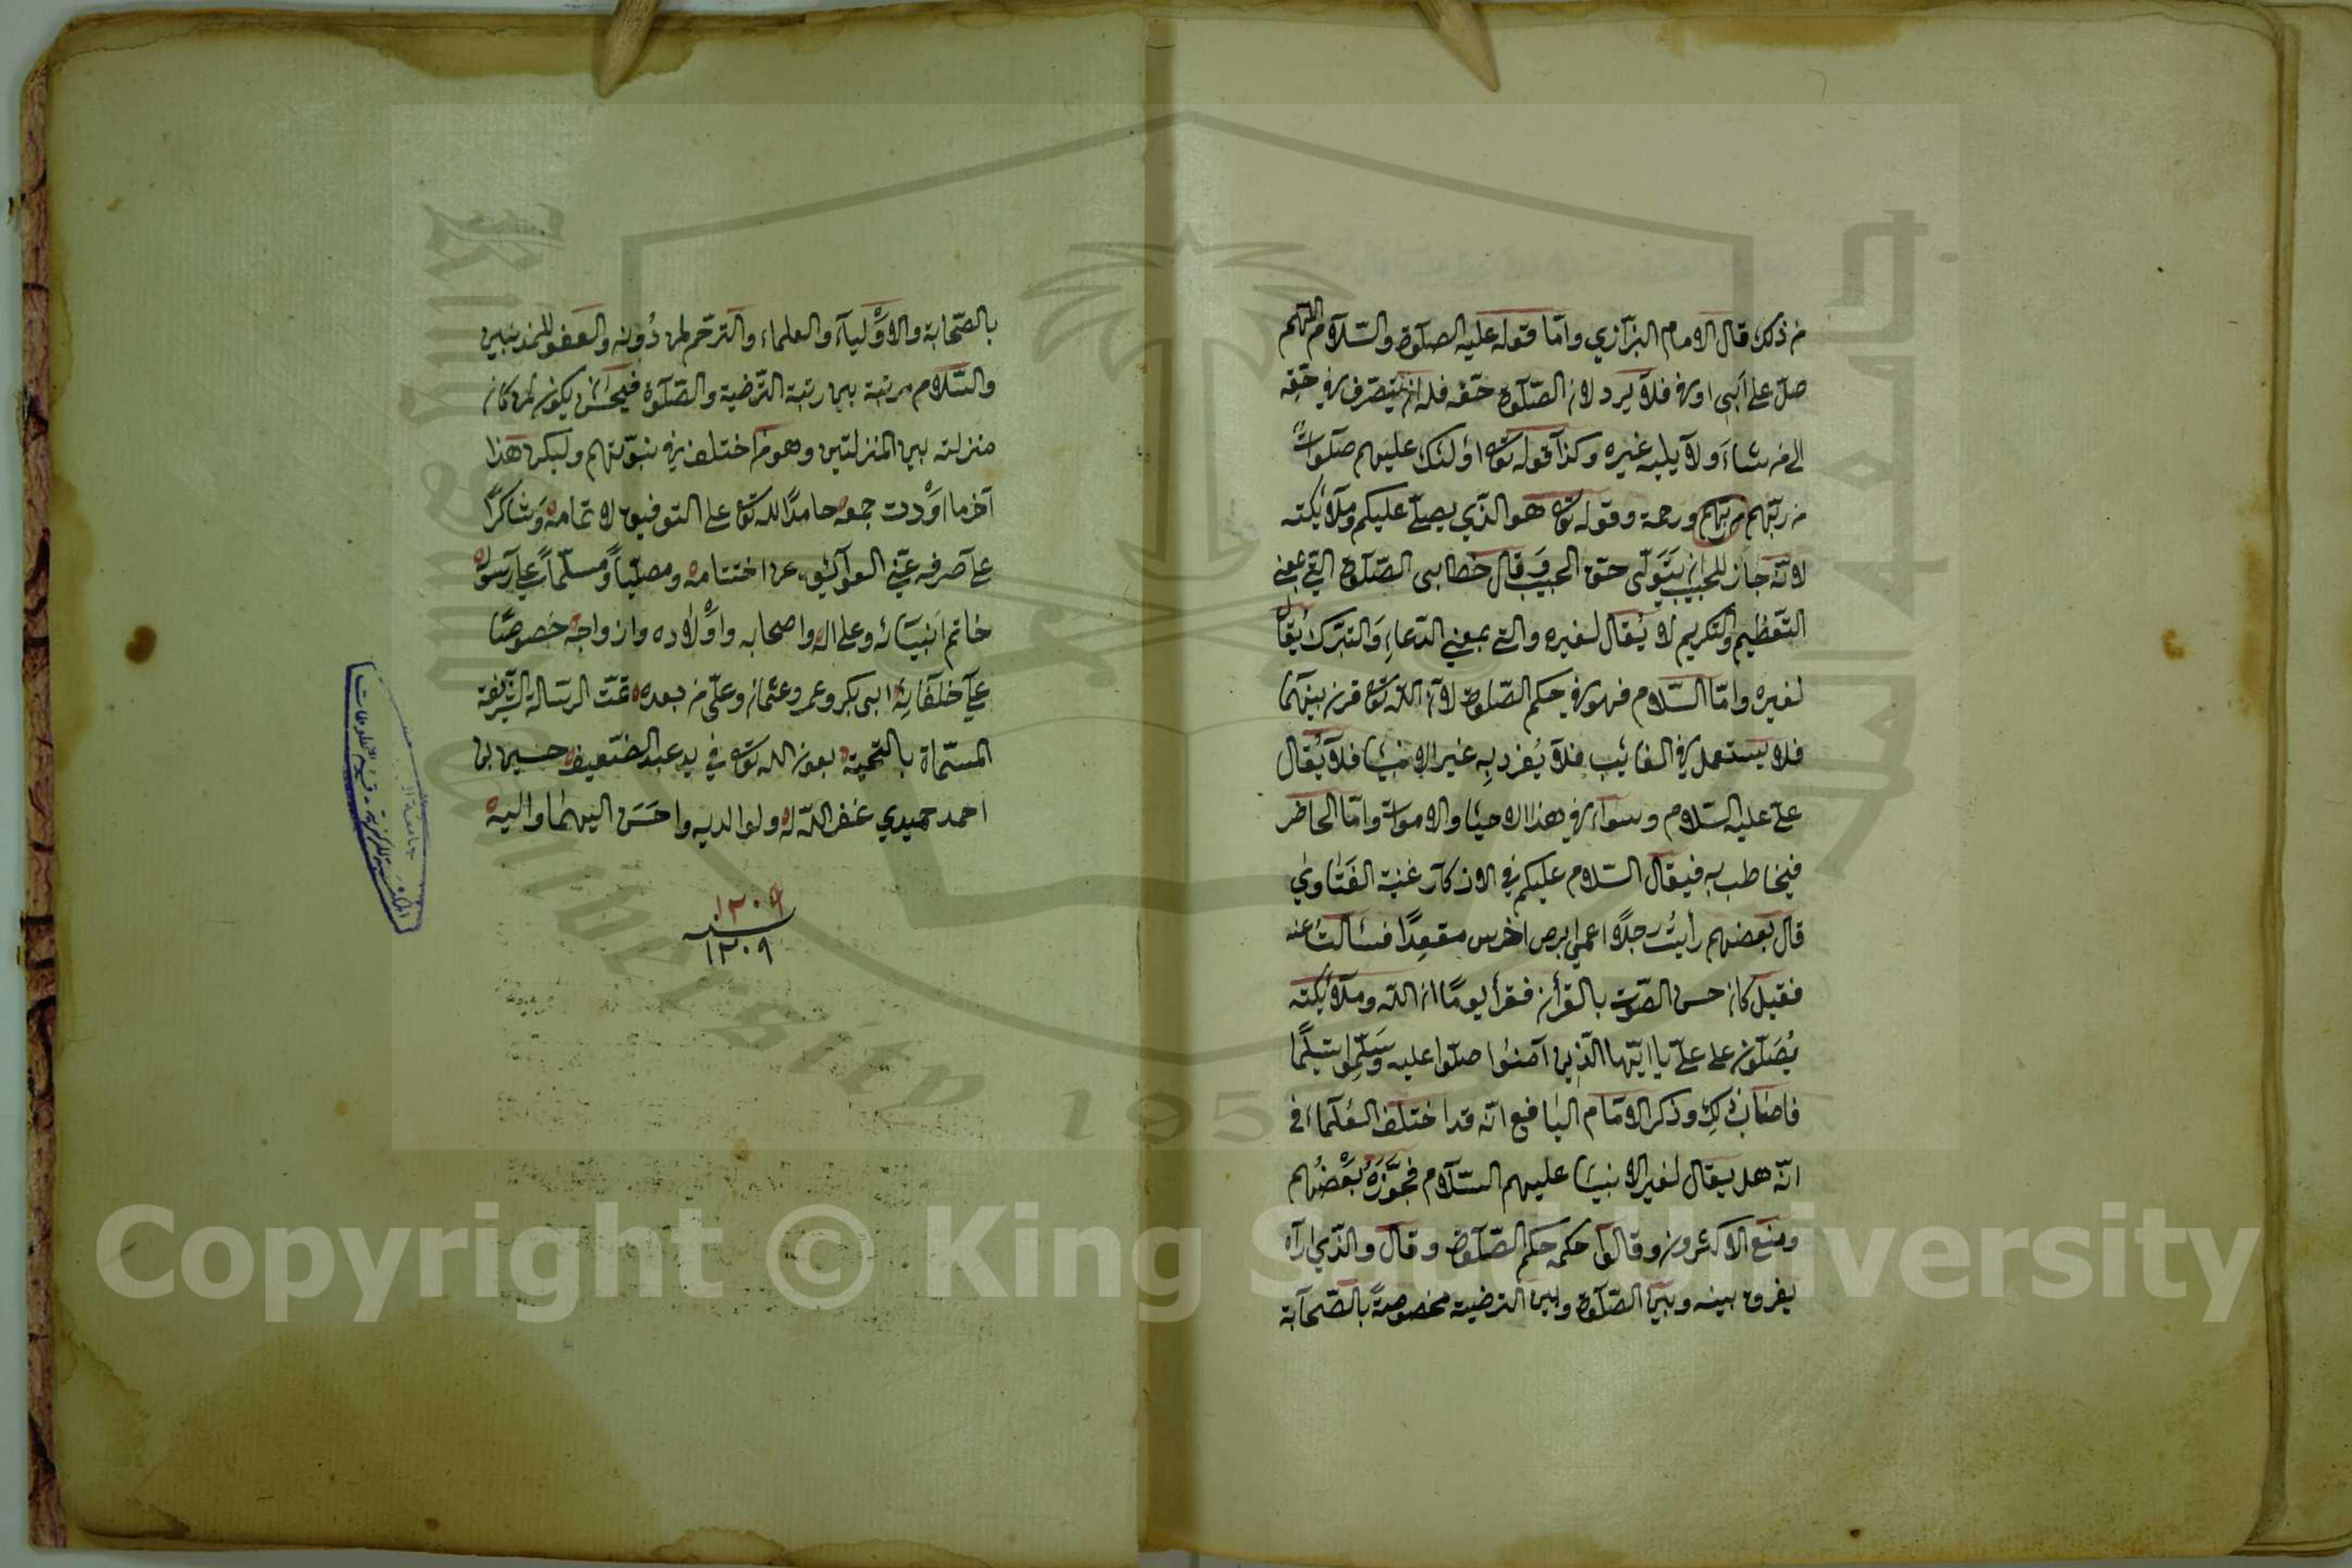 من ذلك قال الامام البزازي واما قوله عليه الصلوة والسلام اللهم
صل على آبي اوفى فلا يرد لان الصلوة حقه فله ان يتصرف في حقه
الى من شاء ولا يليه غيره وكذا قوله تعا اولئك عليهم صلوات
من ربهم من ربهم ورحمة وقوله تعا هو الذي يصلي عليكم وملائكته
لانه جاز للحبيب ان يتولى حق الحبيب وقال خطابى الصلوة التي بمعنى
التعظيم والتكريم لا يقال لغيره والتي بمعنى الدعاء والتبرك يقال
لغيره واما السلام فهو في حكم الصلوة لان الله تعا قرن بينهما
فلا يستعمل في الغائب فلا يفرد به غير الانبيا فلا يقال
علي عليه السلام وسواء في هذا الاحيا والاموات واما الحاضر
فيخاطب به فيقال السلام عليكم في الاذكار غنية الفتاوى
قال بعضهم رأيت رجلا اعمى ابرص اخرس مقعدا فسألت عنه
فقيل كان حسن الصوت بالقرأن فقرأ يوما ان الله وملائكته
يصلون على علي يا ايها الذين آمنوا صلوا عليه وسلموا تسليما
فاصابه ذلك وذكر الامام اليافعي انه قد اختلف العلماء في
انه هل يقال لغير الانبيا عليهم السلام فجوزه بعضهم
ومنع الاكثرون وقالوا حكمه حكم الصلوة وقال والذي اراه
يفرق بينه وبين الصلوة وبين الترضية مخصوصة بالصحابة
بالصحابة والاولياء والعلماء والترحم لمن دونه والعفو للمذنبين
والسلام مرتبة بين رتبة الترضية والصلوة فيحسن ان يكون لمن كان
منزلته بين المنزلتين وهو من اختلف في نبوتهم وليكن هذا
آخر ما اردت جمعه حامدا لله تعا على التوفيق لاتمامه وشاكرا
على صرفه عني العوائق عن اختتامه ومصليا ومسلما على رسوله
خاتم انبيائه وعلى اله واصحابه واولاده وازواجه خصوصا
على خلفائه ابى بكر وعمر وعثمان وعلي من بعده تمت الرسالة الشريفة
المسماة بالتحية بعون الله تعا في يد عبد الضعيف حسين بن
احمد حميدي غفر الله له ولوالديه واحسن اليهما واليه
١٢٠٩
سنه
١٢٠٩
المكتبة المركزية - قسم المخطوطات
Copyright © King Saud University
University 195